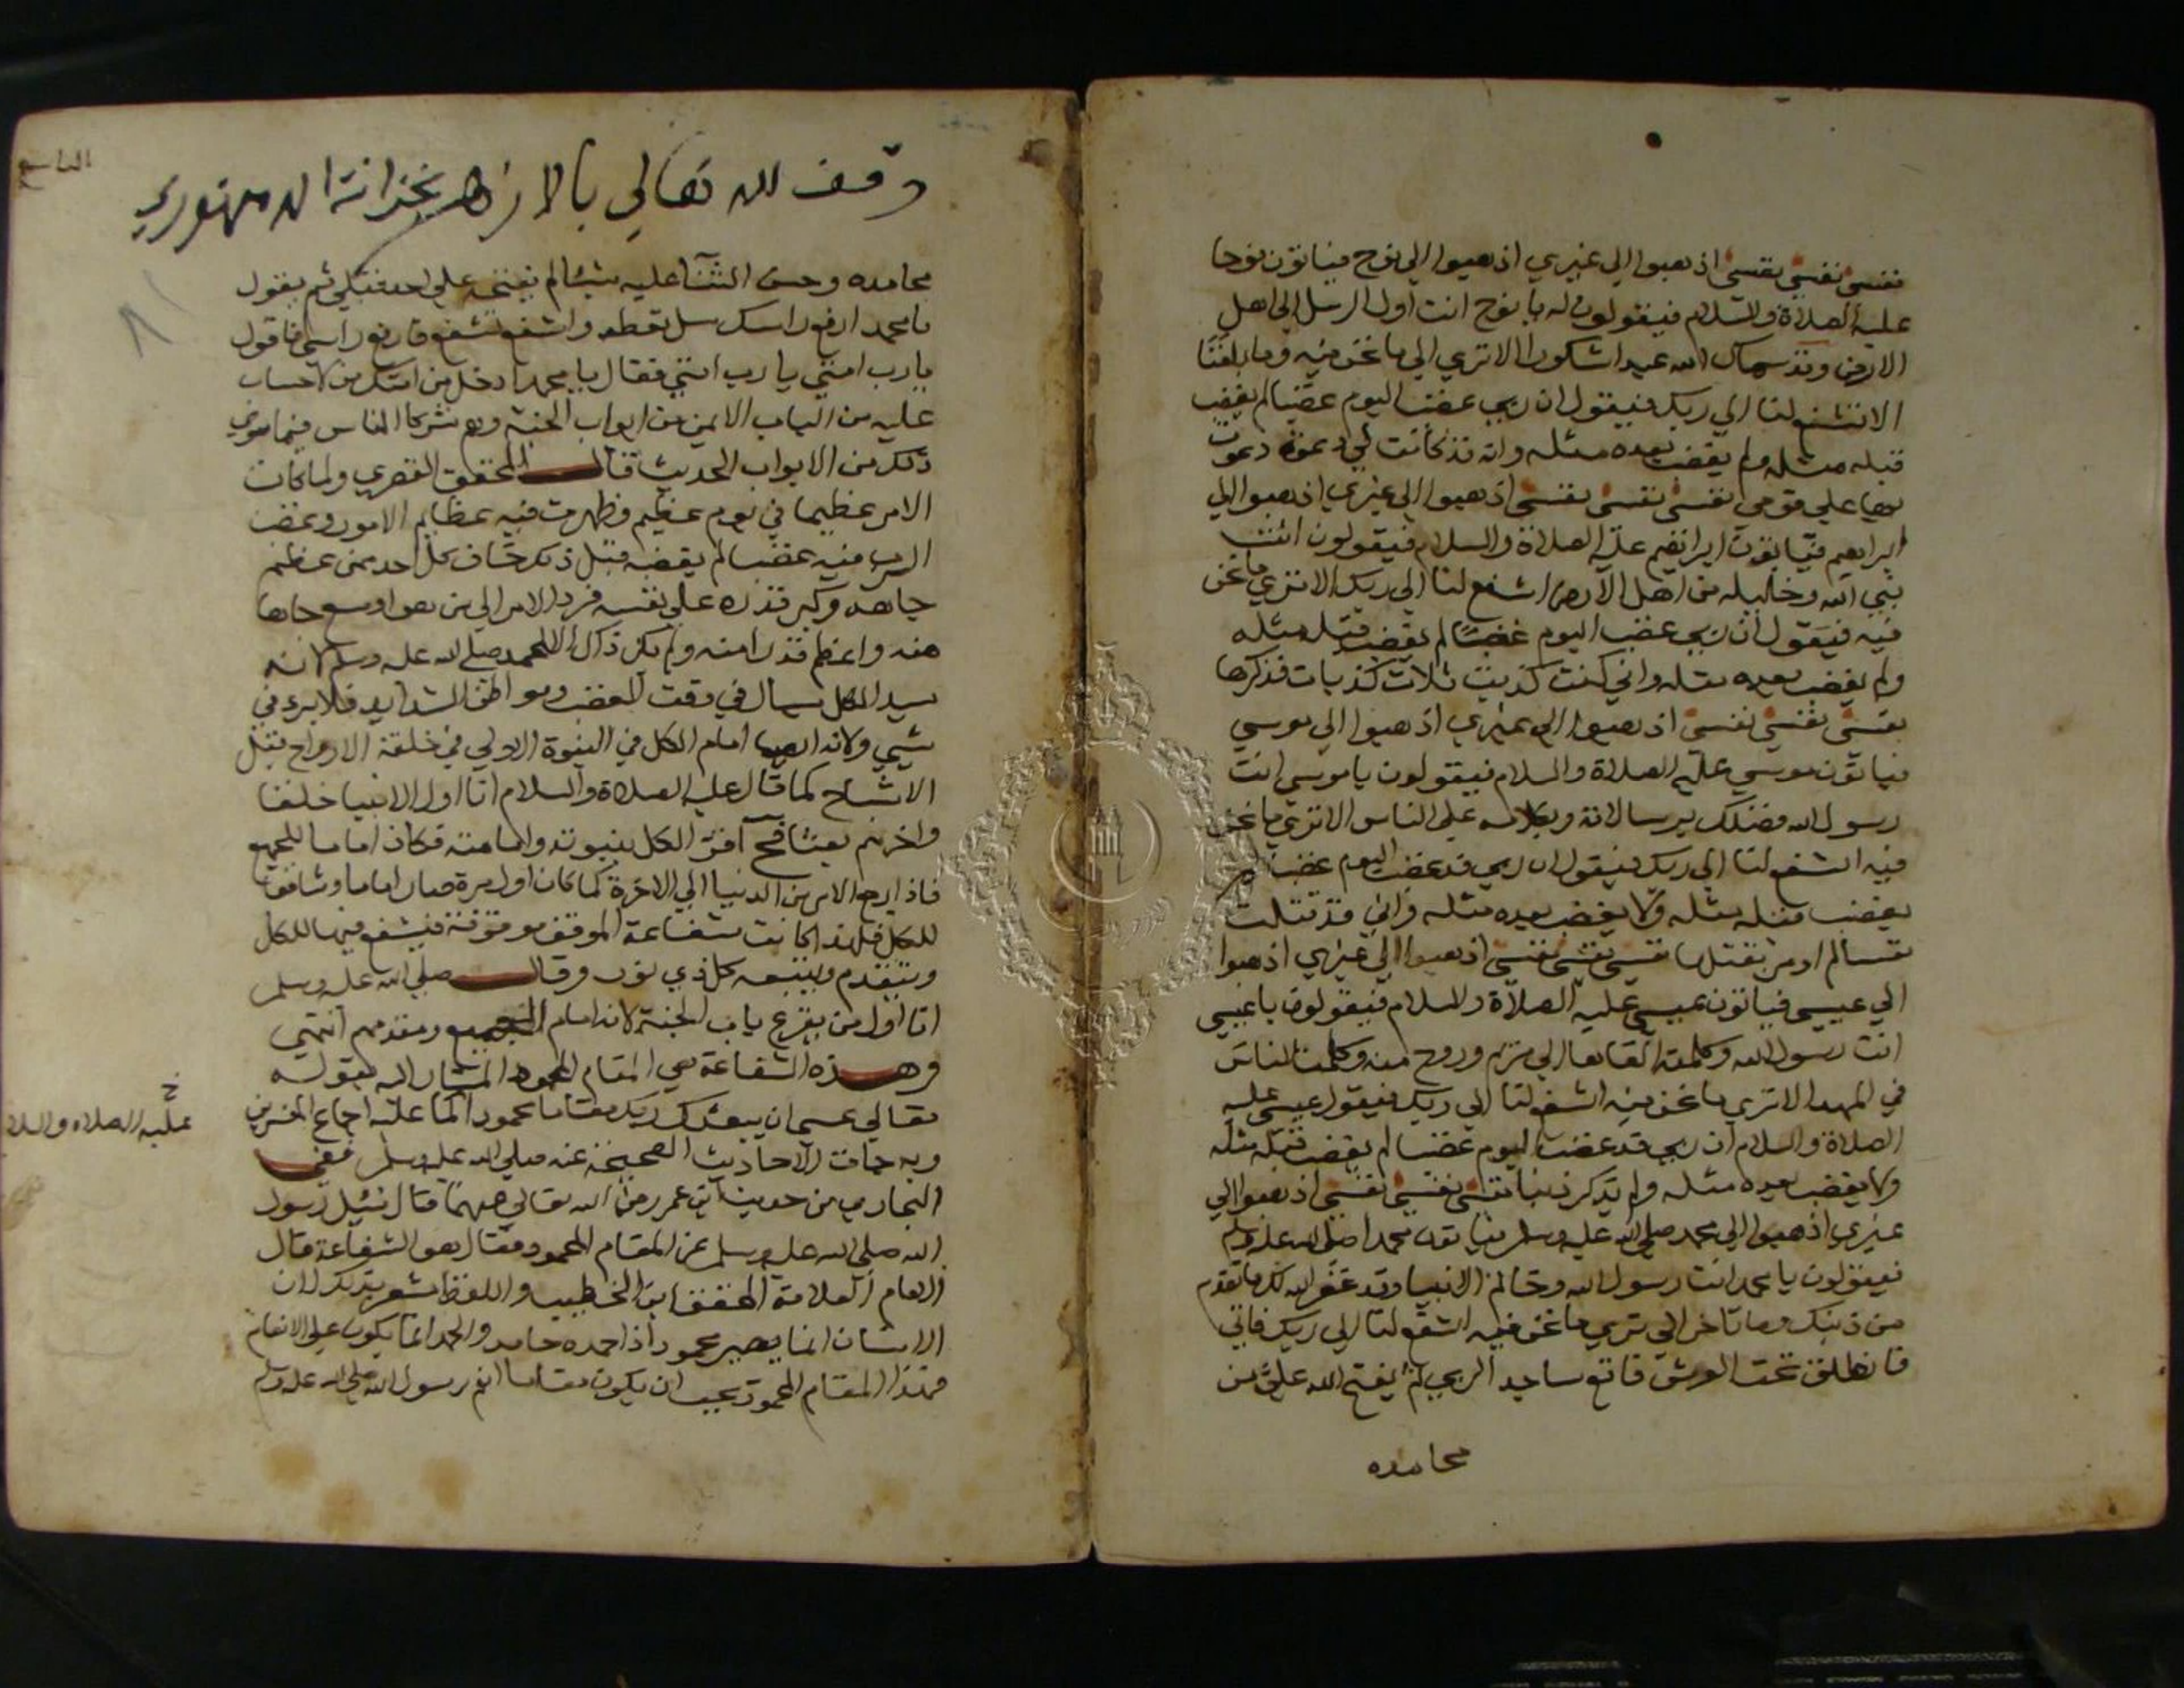 نفسي نفسي نفسي اذهبوا الي غيري اذهبوا الي نوح فياتون نوحا
عليه الصلاة والسلام فيقولون له يا نوح انت اول الرسل الي اهل
الارض وقد سماك الله عبدا شكورا الا تري الي ما نحن فيه وما بلغنا
الا تشفع لنا الي ربك فيقول ان ربي غضب اليوم غضبا لم يغضب
قبله مثله ولم يغضب بعده مثله وانه قد كانت لي دعوة دعوت
بها علي قومي نفسي نفسي نفسي اذهبوا الي غيري اذهبوا الي
ابراهيم فياتون ابراهيم عليه الصلاة والسلام فيقولون انت
نبي الله وخليله من اهل الارض اشفع لنا الي ربك الا تري ما نحن
فيه فيقول ان ربي غضب اليوم غضبا لم يغضب قبله مثله
ولم يغضب بعده مثله واني كنت كذبت ثلاث كذبات فذكرها
نفسي نفسي نفسي اذهبوا الي غيري اذهبوا الي موسي
فياتون موسي عليه الصلاة والسلام فيقولون يا موسي انت
رسول الله فضلك برسالاته وبكلامه علي الناس الا تري ما نحن
فيه اشفع لنا الي ربك فيقول ان ربي قد غضب اليوم غضبا لم
يغضب قبله مثله ولا يغضب بعده مثله واني قد قتلت
نفسا لم اومر بقتلها نفسي نفسي نفسي اذهبوا الي غيري اذهبوا
الي عيسي فياتون عيسي عليه الصلاة والسلام فيقولون يا عيسي
انت رسول الله وكلمته القاها الي مريم وروح منه وكلمت الناس
في المهد الا تري ما نحن فيه اشفع لنا الي ربك فيقول عيسي عليه
الصلاة والسلام ان ربي قد غضب اليوم غضبا لم يغضب قبله مثله
ولا يغضب بعده مثله ولم يذكر ذنبا نفسي نفسي نفسي اذهبوا الي
غيري اذهبوا الي محمد صلي الله عليه وسلم فياتون محمدا صلي الله عليه وسلم
فيقولون يا محمد انت رسول الله وخاتم الانبيا وقد غفر الله لك ما تقدم
من ذنبك وما تاخر الا تري ما نحن فيه اشفع لنا الي ربك فاتي
فانطلق تحت العرش فاقع ساجدا لربي ثم يفتح الله علي من
محامده
وقف لله تعالي بالازهر بخزانة الدمنهوري
محامده وحسن الثنا عليه شيئا لم يفتحه علي احد قبلي ثم يقول
يا محمد ارفع راسك سل تعطه واشفع تشفع فارفع راسي فاقول
يا رب امتي يا رب امتي فقال يا محمد ادخل من امتك من لا حساب
عليه من الباب الايمن من ابواب الجنة وهم شركا الناس فيما سوي
ذلك من الابواب الحديث قال المحقق القصري ولما كان
الامر عظيما في يوم عظيم وظهرت فيه عظايم الامور وغضب
الرب فيه غضبا لم يغضبه قبل ذلك خاف كل احد ممن عظم
جاهه وكبر قدره علي نفسه فرد الامر الي من هو اوسع جاها
منه واعظم قدرا منه ولم يكن ذاك الا لمحمد صلي الله عليه وسلم لانه
سيد الكل سيما في وقت الغضب ومواطن الشدايد فلا يري في
شيي ولانه ايضا امام الكل في النبوة الاولي في خلقة الارواح قبل
الاشباح كما قال عليه الصلاة والسلام انا اول الانبيا خلقا
واخرهم بعثا فح اقر الكل بنبوته وامامته فكان اماما للجميع
فاذا رجع الامر من الدنيا الي الاخرة كما كان اول مرة صار اماما وشافعا
للكل فلهذا كانت شفاعة الموقف موقوفة فيشفع فيها للكل
ويتقدم ويتبعه كل ذي نور وقال صلي الله عليه وسلم
انا اول من يقرع باب الجنة لانه امام الجميع ومقدمهم انتهي
وهذه الشفاعة هي المقام المحمود المشار اليه بقوله
تعالي عسي ان يبعثك ربك مقاما محمودا كما عليه اجماع المفسرين
وبه جات الاحاديث الصحيحة عنه صلي الله عليه وسلم ففي
البخاري من حديث ابن عمر رضي الله تعالي عنهما قال سئيل رسول
الله صلي الله عليه وسلم عن المقام المحمود فقال هو الشفاعة قال
الامام العلامة المحقق ابن الخطيب واللفظ مشعر بذلك لان
الانسان انما يصير محمودا اذا حمده حامد والحمد انما يكون علي الانعام
فهذا المقام المحمود يجب ان يكون مقاما انعم رسول الله صلي الله عليه وسلم
خ
عليه الصلاه والسلا